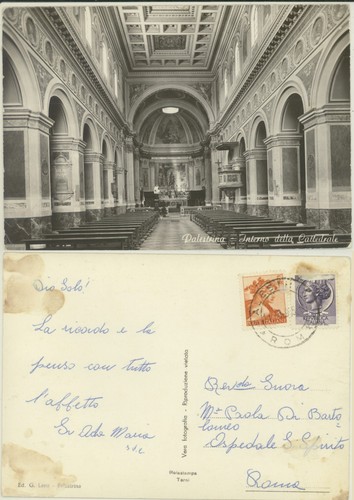 Palestrina - Interno della Cattedrale
Dio Solo!
La ricordo e la
penso con tutto
l'affetto
Sr Ada Maria
Ed. G. Lena - Palestrina
Vera fotografia - Riproduzione vietata
Terni
ROMA
Rev.da Suora
M. Paola Di Barto
lomeo
Ospedale S. Spirito
Roma